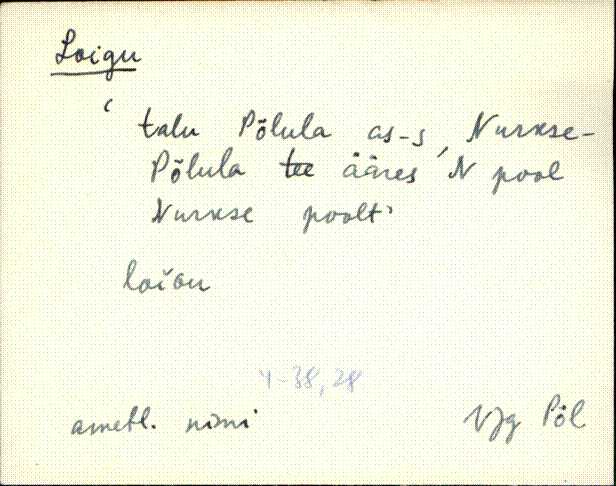 Loigu
‘talu Põlula as-s, Nurkse-
Põlula tee ääres N pool
Nurkse poolt’
loiGu
4-38, 28
ametl. nimi VJg Põl